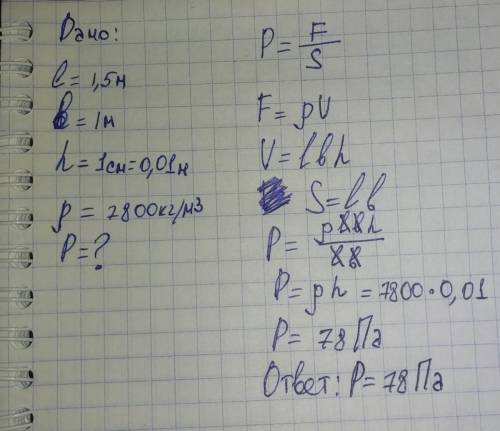 Дано:
l = 1,5м
b = 1м
h = 1см = 0,01м
ρ = 7800кг/м³
P = ?
P = F/S
F = ρV
V = lbh
S = lb
P = ρlbh/lb
P = ρh = 7800 · 0,01
P = 78 Па
Ответ: P = 78 Па